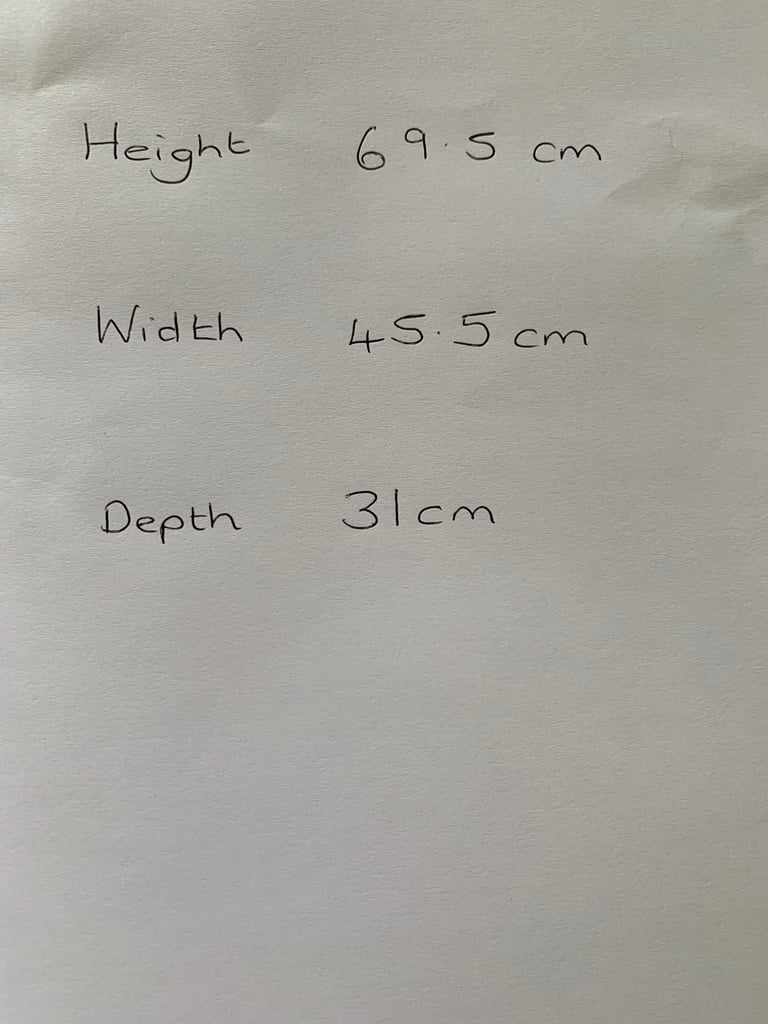 Height 69.5 cm
Width 45.5 cm
Depth 31cm